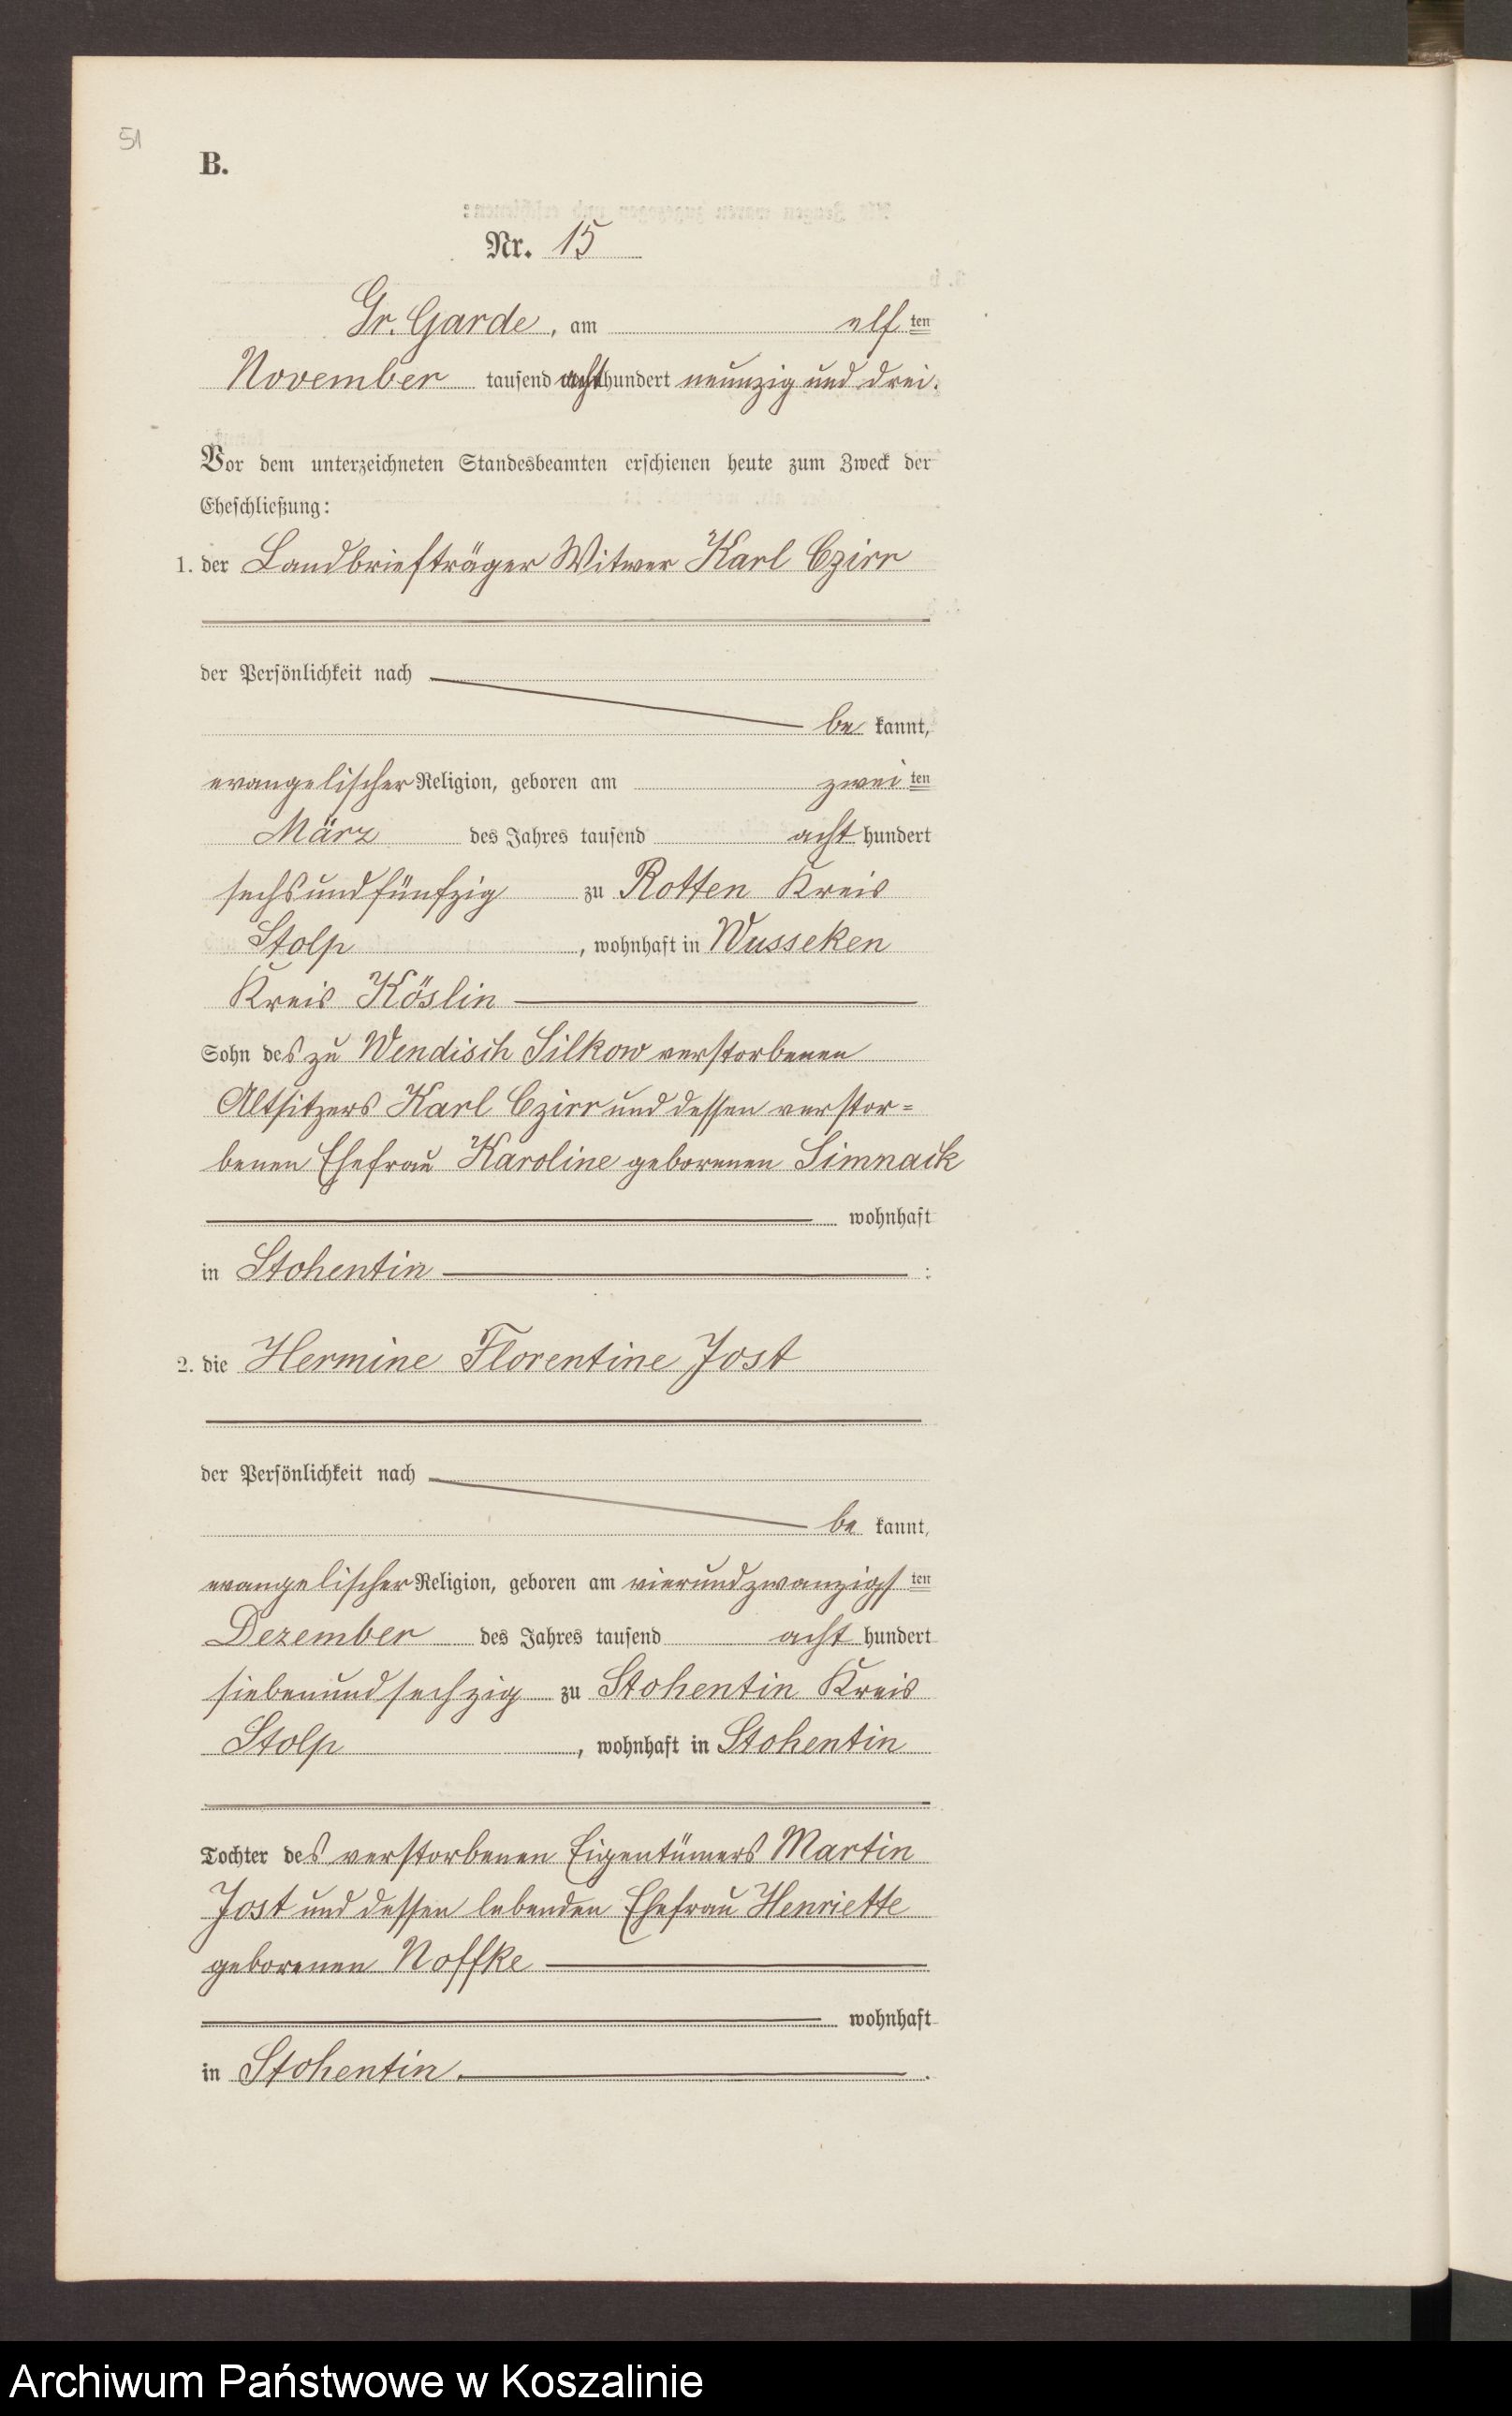 51
B.
Nr. 15
Gr. Garde, am elf ten
November tausend acht hundert neunzig und drei.
Vor dem unterzeichneten Standesbeamten erschienen heute zum Zweck der
Eheschließung:
1. der Landbriefträger Witwer Karl Czirr
der Persönlichkeit nach
be kannt,
evangelischer Religion, geboren am zwei ten
März des Jahres tausend acht hundert
sechsundfünfzig zu Rotten Kreis
Stolp, wohnhaft in Wusseken
Kreis Köslin
Sohn des zu Wendisch Silkow verstorbenen
Altsitzers Karl Czirr und dessen verstor=
benen Ehefrau Karoline geborenen Simnack
wohnhaft
in Stohentin :
2. die Hermine Florentine Jost
der Persönlichkeit nach
be kannt,
evangelischer Religion, geboren am vierundzwanzigs ten
Dezember des Jahres tausend acht hundert
siebenundsechzig zu Stohentin Kreis
Stolp, wohnhaft in Stohentin
Tochter des verstorbenen Eigentümers Martin
Jost und dessen lebenden Ehefrau Henriette
geborenen Noffke
wohnhaft
in Stohentin. .
Archiwum Państwowe w Koszalinie